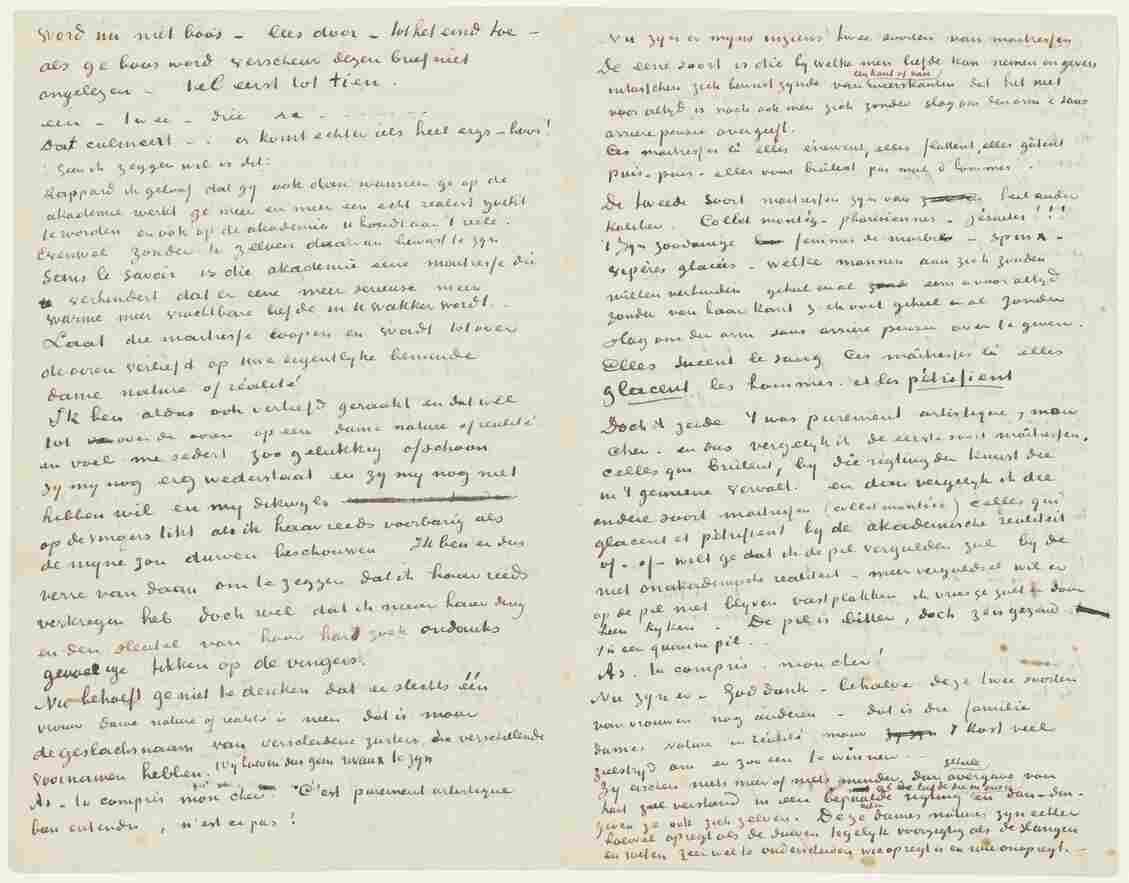 Word nu niet boos – lees door – tot het eind toe –
als ge boos word verscheur dezen brief niet
ongelezen – tel eerst tot tien.
een – twee – drie &c. – – – – – –
Dat culmeert – . er komt echter iets heel ergs – hoor!
Zeggen wil is dit:
Rappard ik geloof dat gy ook dan wanneer ge op de
akademie werkt ge meer en meer een echt realist zoekt
te worden en ook op de akademie u houdt aan 't reële.
Evenwel zonder te zelven daarvan bewust te zyn
Sans le savoir is die akademie eene maitresse die
verhindert dat er eene meer serieuse meer
warme meer vruchtbare liefde in U wakker wordt. –
Laat die maitresse loopen en wordt tot over
de ooren verliefd op uwe eigentlyke beminde
dame nature of réalité
Ik ben aldus ook verliefd geraakt en dat wel
tot over de ooren op een dame nature of realité
en voel me sedert zoo gelukkig ofschoon
zy my nog erg wederstaat en zy my nog niet
hebben wil en my dikwyls
op de vingers tikt als ik haar reeds voorbarig als
de myne zou durven beschouwen Ik ben er dus
verre van daan om te zeggen dat ik haar reeds
verkregen heb doch wel dat ik naar haar ding
en den sleutel van haar hart zoek ondanks
gevoelige tikken op de vingers.
Nu behoeft ge niet te denken dat er slechts één
vrouw dame nature of realité is neen dat is maar
de geslachsnaam van verscheidene zusters die verschillende
voornamen hebben. Wy hoeven dus geen rivaux te zyn
As-tu compris mon cher C'est purement artistique
bien entendu, n'est ce pas!
Nu zyn er myns inziens twee soorten van maitressen
De eene soort is die by welke men liefde kan nemen en geven
intusschen zich bewust zynde van een kant of van weerskanten dat het niet
voor altyd is noch ook men zich zonder slag om den arm & sans
arriere pensee overgeeft.
Ces maitresses là elles énervent, elles flattent, elles gâtent
puis – puis – elles vous brûlent pas mal d'hommes.
De tweede soort maitressen zyn van heel ander
kaliber. Collet montés – pharisiennes – jesuites!!!
't Zyn zoodanige femmes de marbre – spinx –
vipères glacés – welke mannen aan zich zouden
willen verbinden geheel en al eens & voor altyd
zonder van haar kant zich ooit geheel en al zonder
slag om den arm sans arrière pensée over te geven.
Elles sucent le sang ces maîtresses là elles
glacent les hommes et les pétrifient
Doch ik zeide 't was purement artistique, mon
cher. en dus vergelyk ik de eerste soort maîtressen,
celles qui brûlent, by die rigting der kunst die
in 't gemeene vervalt. en dan vergelyk ik die
andere soort maitressen (collet montées) celles qui
glacent et pétrifient by de akademische realiteit
of – of – wilt ge dat ik de pil vergulden zal by de
niet onakademische realiteit – meer verguldsel wil er
op de pil niet blyven vastplakken ik vrees ge zult er door
heen kyken. De pil is bitter, doch zeer gezond
't is een quinine pil..
As-tu compris. mon cher!
Nu zyn er – God dank – behalve deze twee soorten
van vrouwen nog anderen – dat is die familie
dames nature en réalité maar 't kost veel
zielestryd om er zoo een te winnen. –
Zy eischen niets meer of niets minder dan geheele overgave van
hart ziel verstand in een bepaalde rigting al de liefde die in ons is en dan – dan –
geven ze ook zich zelven. Deze dames natures zyn echter
hoewel opregt als de duiven tegelyk voorzigtig als de slangen
en weten zeer wel te onderscheiden wie opregt is en wie onopregt. –